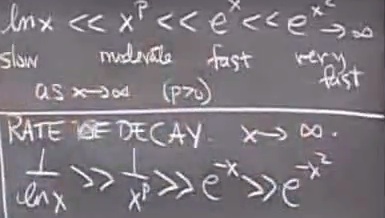 ln x << x^p << e^x << e^x^2 → ∞
slow moderate fast very fast
as x→∞ (p>0)
RATE OF DECAY. x→ ∞.
1/ln x >> 1/x^p >> e^-x >> e^-x^2